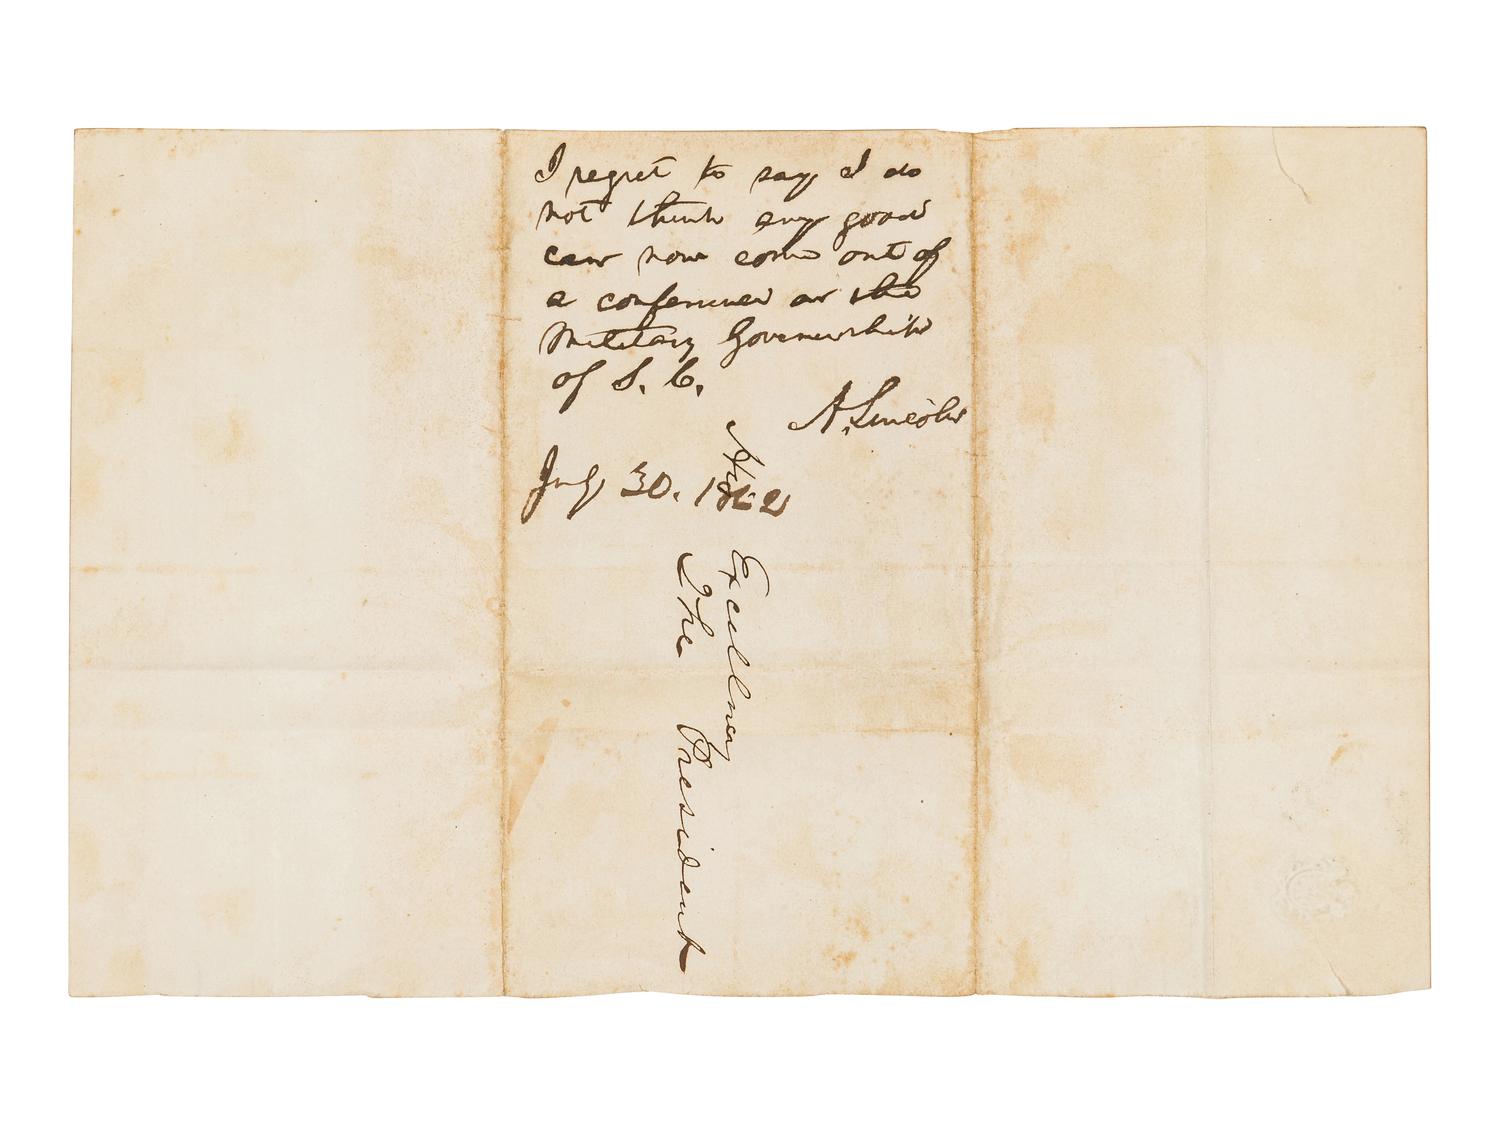 I regret to say I do
not think any good
can now come out of
a conference on the
Military Governership
of S. C.
A. Lincoln
July 30. 1862
His Excellency
The President